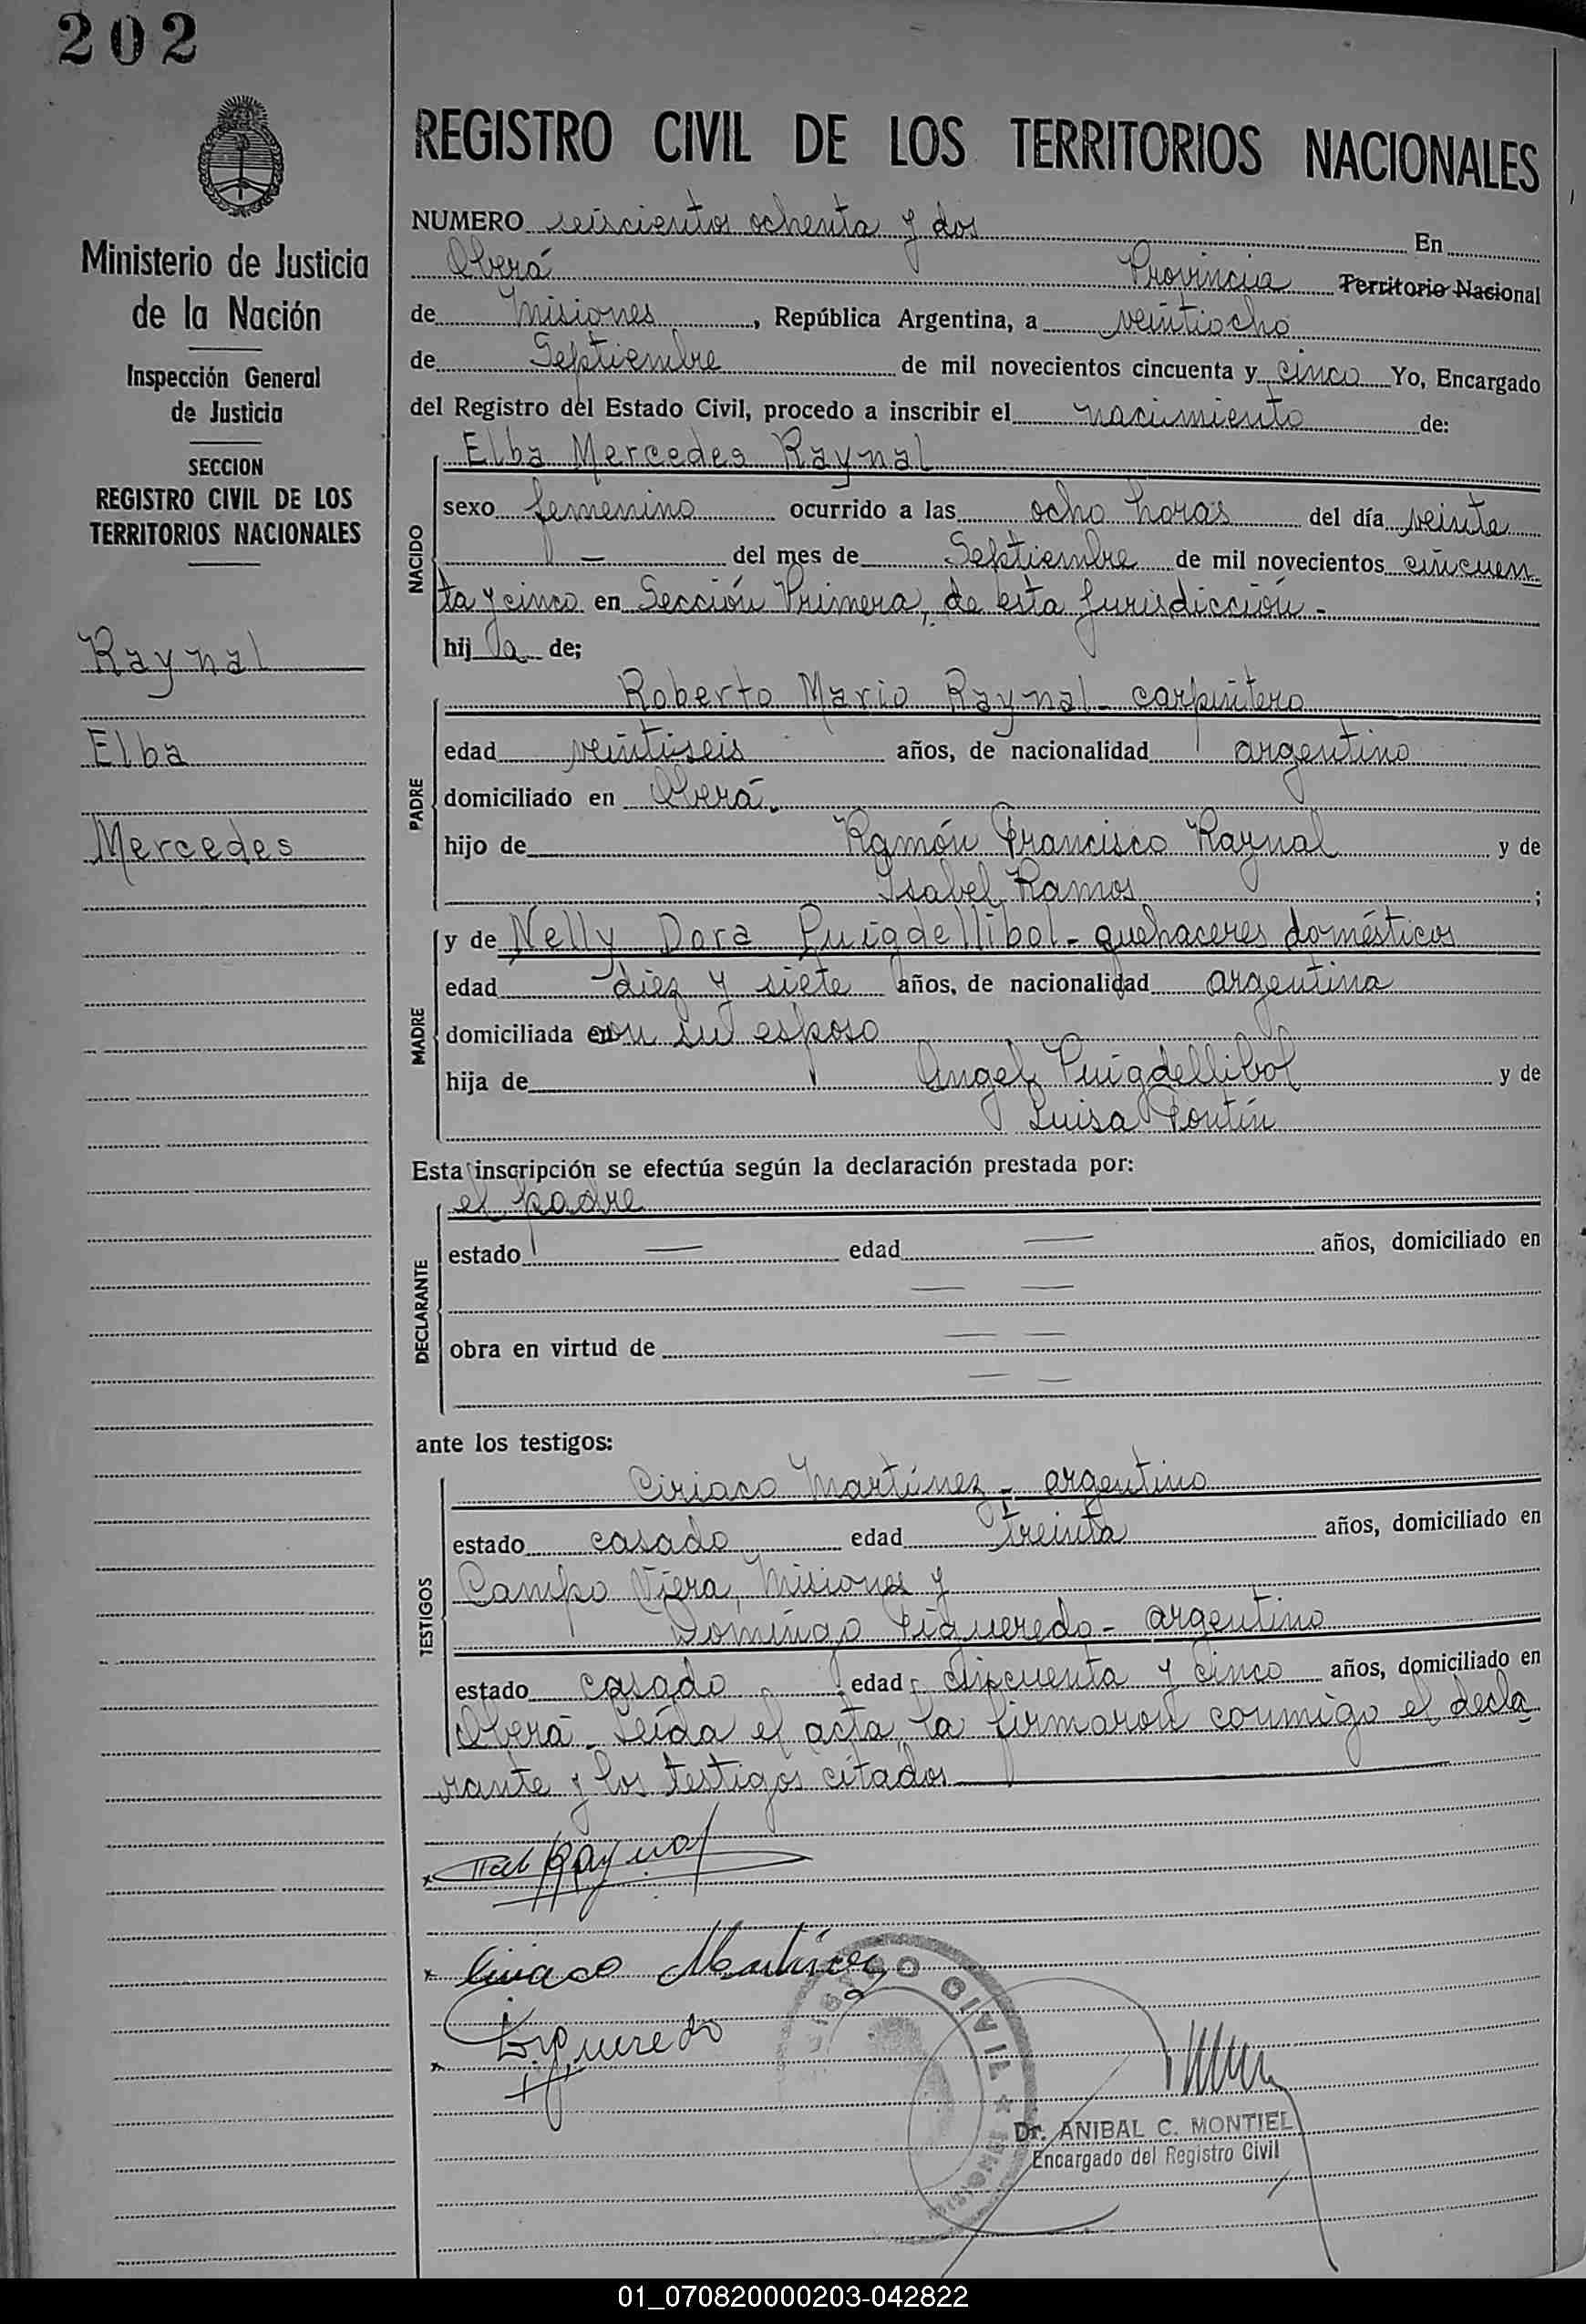 202
Ministerio de Justicia
de la Nación
Inspección General
de Justicia
SECCION
REGISTRO CIVIL DE LOS
TERRITORIOS NACIONALES
Raynal
Elba
Mercedes
REGISTRO CIVIL DE LOS TERRITORIOS NACIONALES
NUMERO seiscientos ochenta y dos En
Oberá Provincia Territorio Nacional
de Misiones, República Argentina, a veintiocho
de Septiembre de mil novecientos cincuenta y cinco Yo, Encargado
del Registro del Estado Civil, procedo a inscribir el nacimiento de:
NACIDO
Elba Mercedes Raynal
sexo femenino ocurrido a las ocho horas del día veinte
— del mes de Septiembre de mil novecientos cincuen
ta y cinco en Sección Primera, de esta jurisdicción -
hij a de;
PADRE
Roberto Mario Raynal - carpintero
edad veintiseis años, de nacionalidad argentino
domiciliado en Oberá.
hijo de Ramón Francisco Raynal y de
Isabel Ramos ;
MADRE
y de Nelly Dora Puigdellibol - quehaceres domésticos
edad diez y siete años, de nacionalidad argentina
domiciliada en con su esposo
hija de Angel Puigdellibol y de
Luisa Pontín
Esta inscripción se efectúa según la declaración prestada por:
DECLARANTE
el padre
estado — edad — años, domiciliado en
— —
obra en virtud de — —
— —
ante los testigos:
TESTIGOS
Ciriaco Martínez - argentino
estado casado edad treinta años, domiciliado en
Campo Viera, Misiones y
Domingo Figueredo - argentino
estado casado edad cincuenta y cinco años, domiciliado en
Oberá - Leída el acta, la firmaron conmigo el decla
rante y los testigos citados
Raynal
Ciriaco Martínez
Figueredo
REGISTRO CIVIL
Dr. ANIBAL C. MONTIEL
Encargado del Registro Civil
01_070820000203-042822